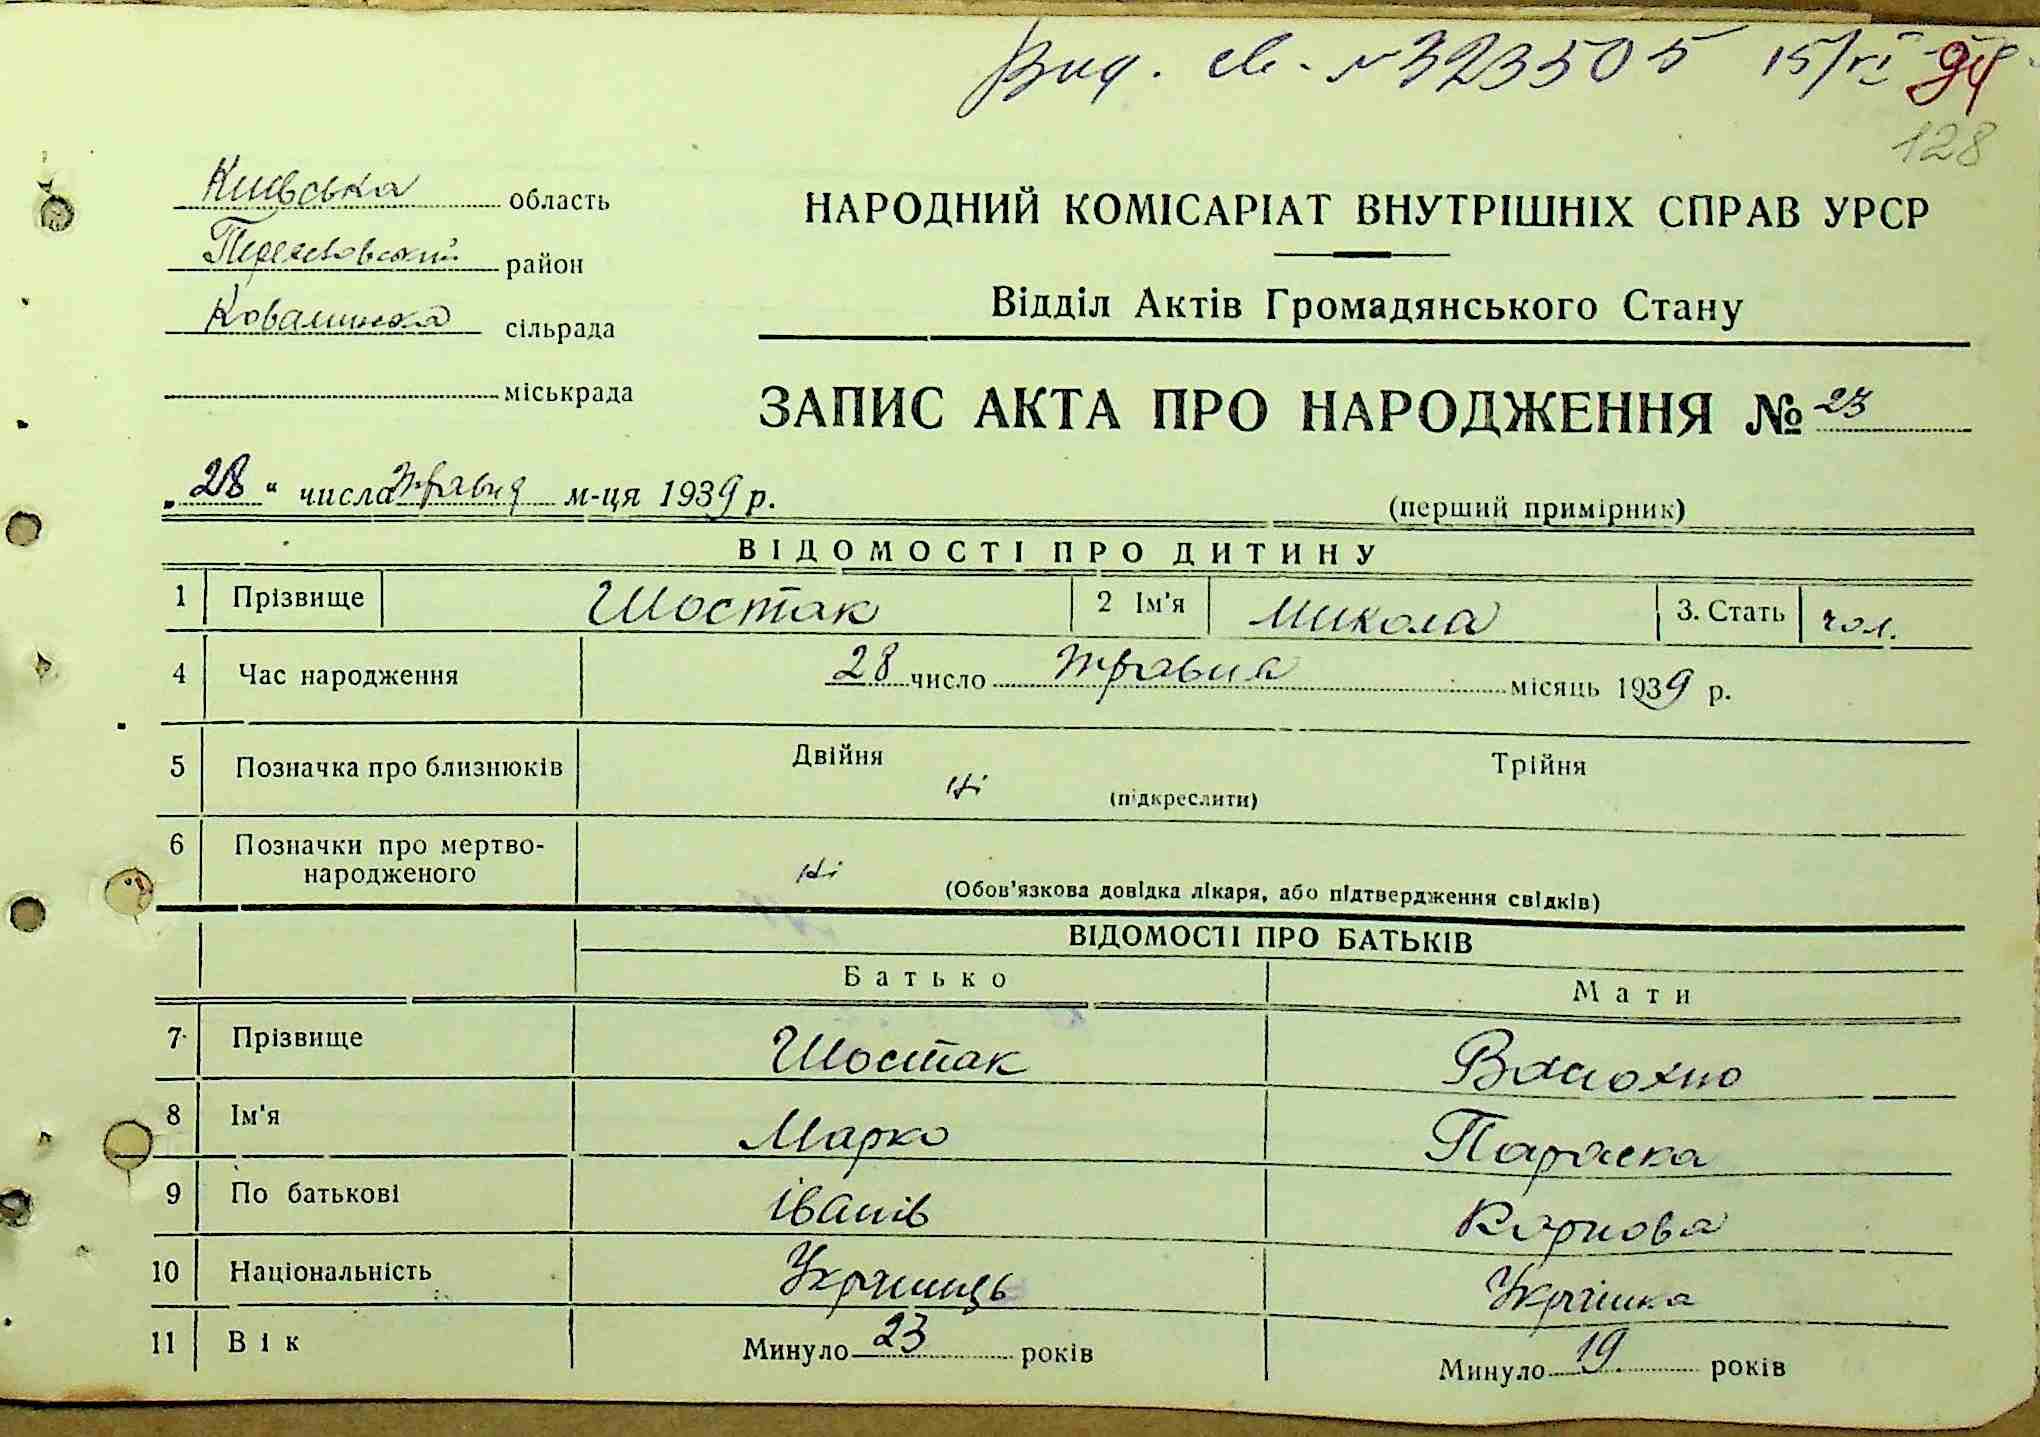 Вид. св. № 323505 15/VI 94
128
Київська область
район
Ковалинска сільрада
міськрада
НАРОДНИЙ КОМІСАРІАТ ВНУТРІШНІХ СПРАВ УРСР
Відділ Актів Громадянського Стану
ЗАПИС АКТА ПРО НАРОДЖЕННЯ № 23
„28" числа травня м-ця 1939 р.
(перший примірник)
ВІДОМОСТІ ПРО ДИТИНУ
1 Прізвище Шостак 2 Ім'я Микола 3. Стать чол.
4 Час народження 28 число травня місяць 1939 р.
5 Позначка про близнюків Двійня ні (підкреслити) Трійня
6 Позначки про мертво-
народженого ні (Обов'язкова довідка лікаря, або підтвердження свідків)
ВІДОМОСТІ ПРО БАТЬКІВ
Батько Мати
7 Прізвище Шостак
8 Ім'я Марко Параска
9 По батькові Іванів Карпова
10 Національність Українець Українка
11 Вік Минуло 23 років Минуло 19 років